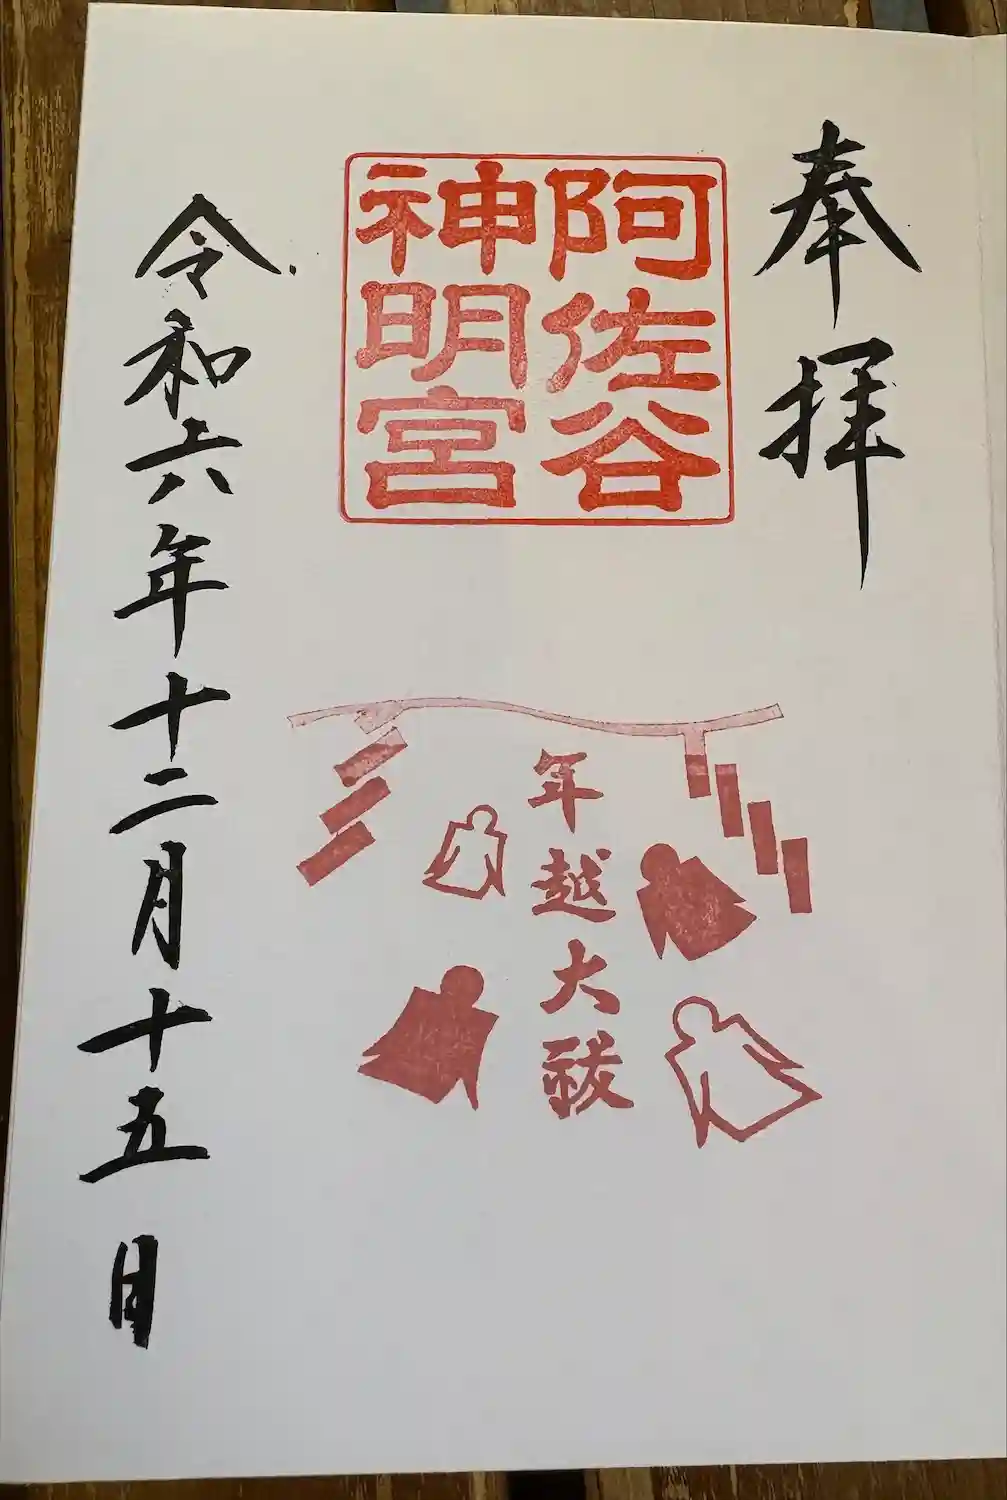 奉拝
阿佐谷
神明宮
年越大祓
令和六年十二月十五日